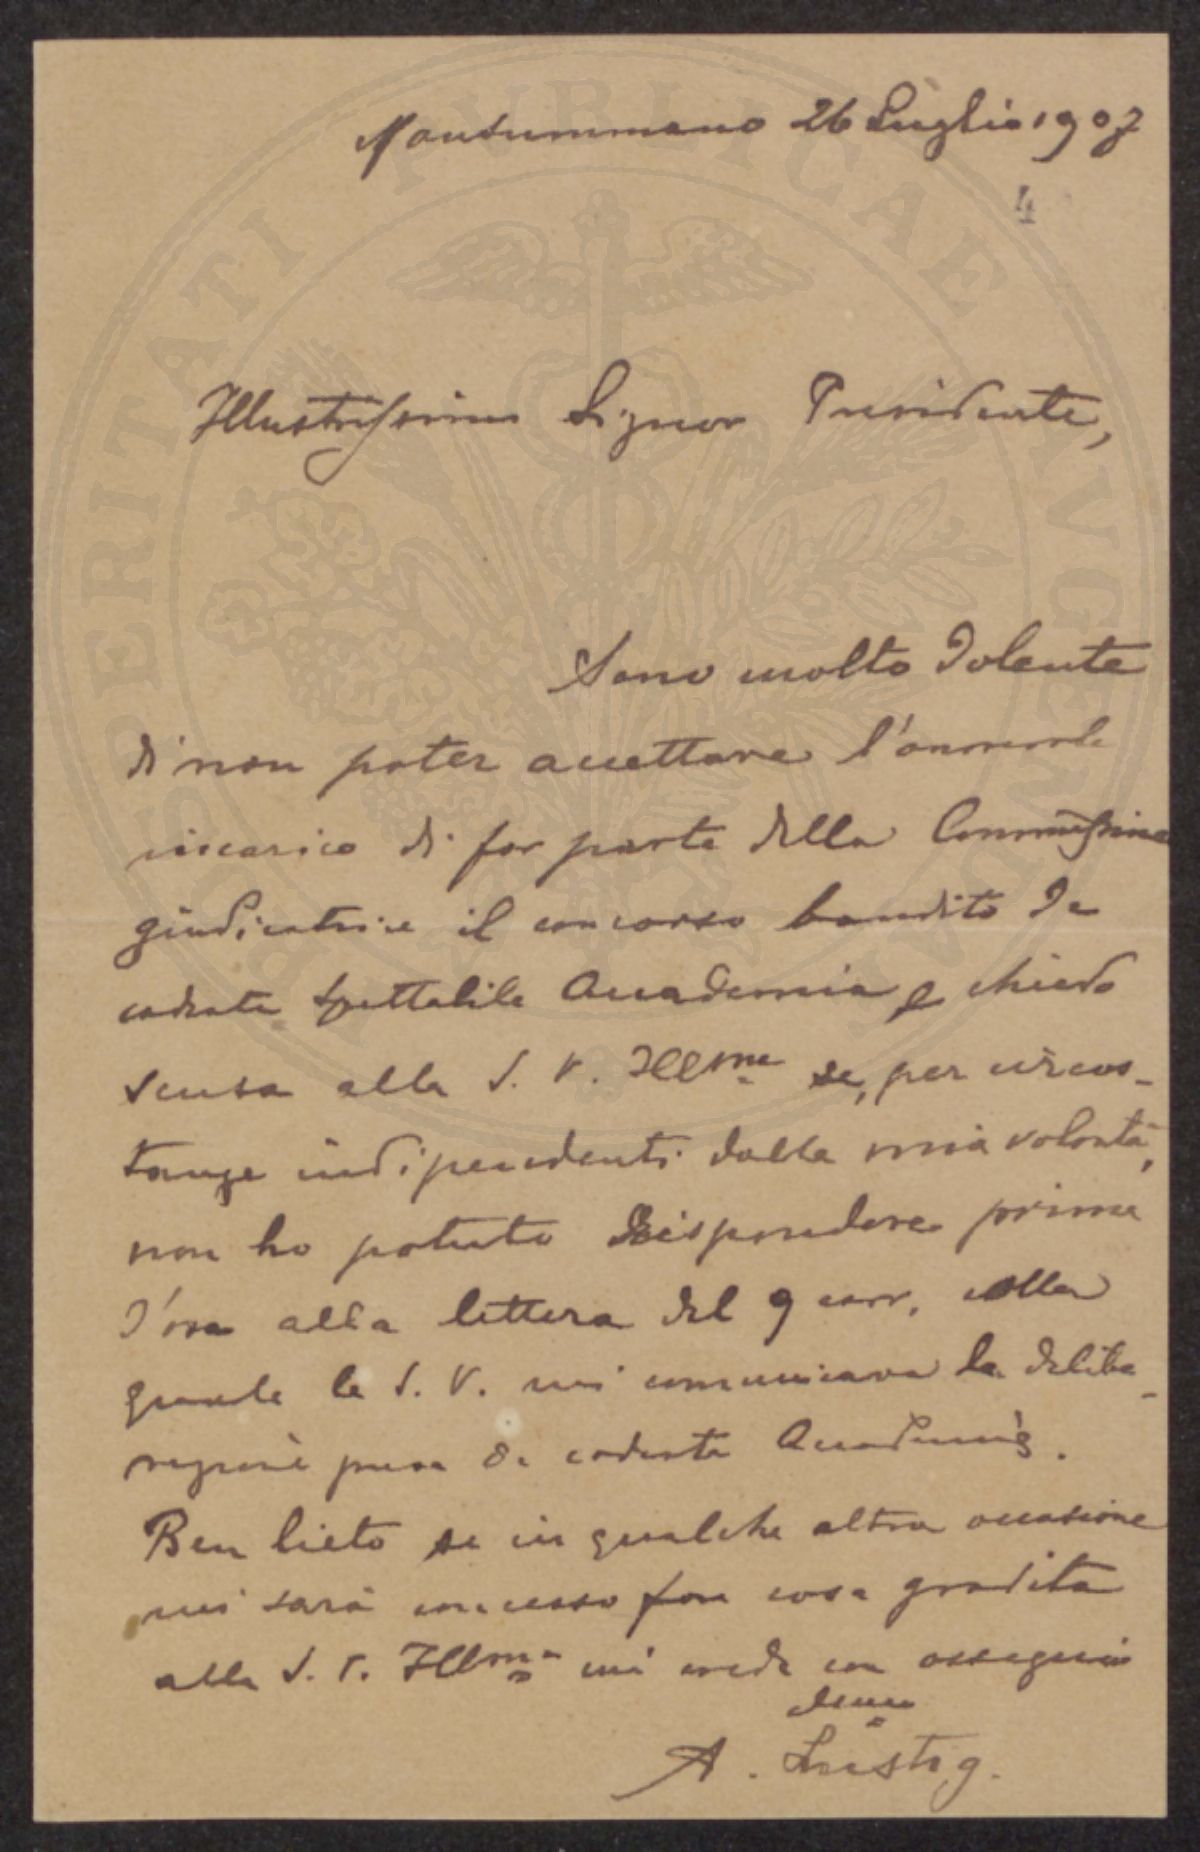 Monsummano 26 Luglio 1907
4
Illustrissimo Signor Presidente,
Sono molto dolente
di non poter accettare l'onorevole
incarico di far parte della Commissione
giudicatrice il concorso bandito da
codesta spettabile Accademia e chiedo
scusa alla S. V. Illma se, per circos-
tanze indipendenti dalla mia volontà,
non ho potuto rispondere prima
d'ora alla lettera del 9 corr. colla
quale la S. V. mi comunicava la delibe-
razione presa da codesta Accademia.
Ben lieto se in qualche altra occasione
mi sarà concesso fare cosa gradita
alla S. V. Illma mi creda con ossequio
A. Lustig.
PROSPERITATI PVBLICAE AVGENDAE